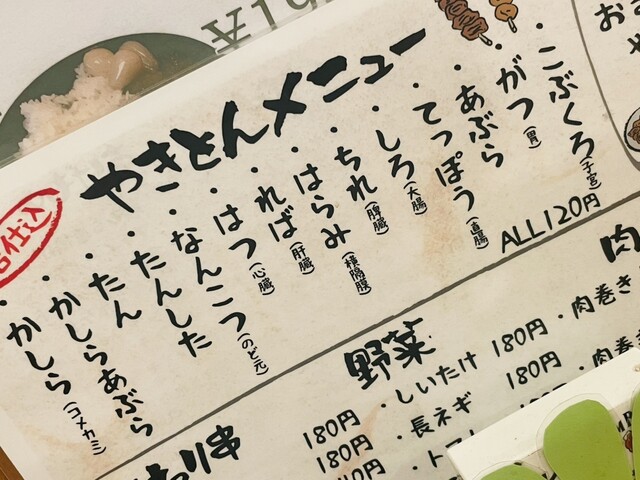 ¥19
やきとんメニュー
仕込
・かしら(コメカミ)
・かしらあぶら
・たん
・たんした
・なんこつ(のど元)
・はつ(心臓)
・れば(肝臓)
・はらみ(横隔膜)
・ちれ(脾臓)
・しろ(大腸)
・てっぽう(直腸)
・あぶら
・がつ(胃)
・こぶくろ(子宮)
ALL120円
野菜
・しいたけ 180円
・長ネギ 180円
・トマト
り串
180円
180円
肉
・肉巻き
・肉巻き